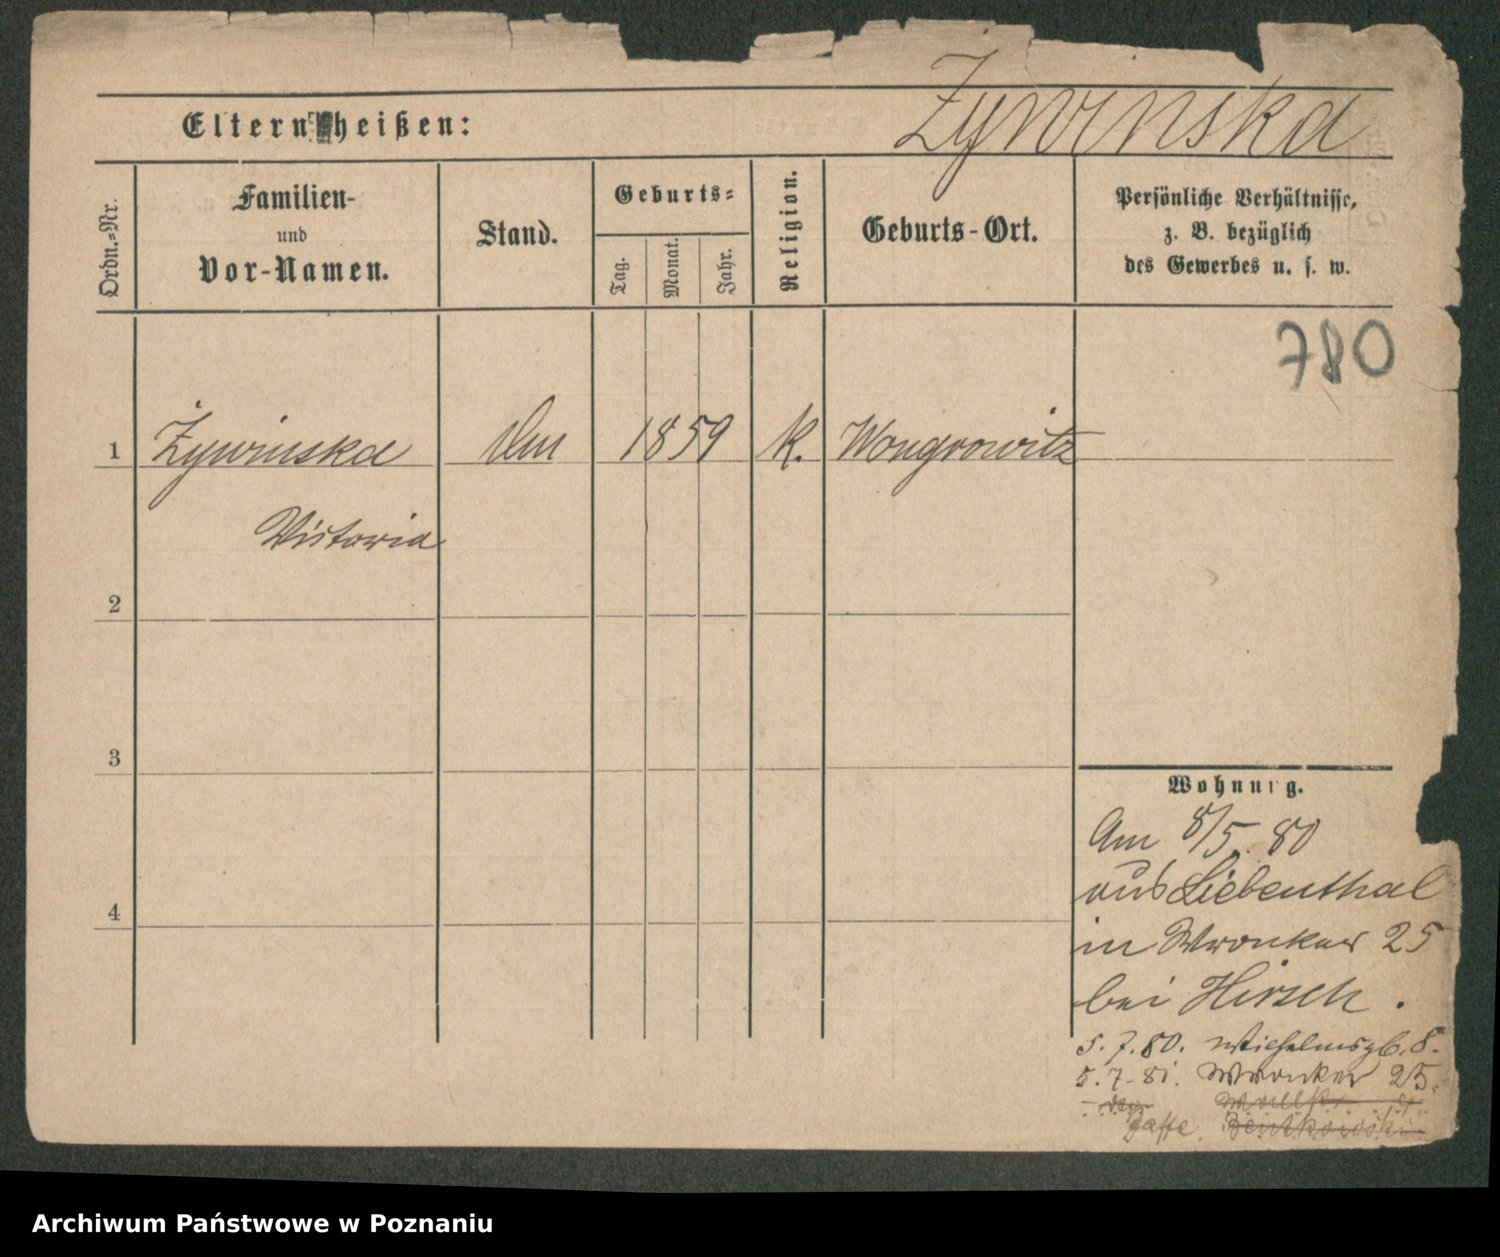 Żywinska
Eltern heißen:
Ordn.-Nr.
Familien-
und
Vor-Namen.
Stand.
Geburts-
Tag.
Monat.
Jahr.
Religion.
Geburts-Ort.
Persönliche Verhältnisse,
z. B. bezüglich
des Gewerbes u. s. w.
780
1 Żywinska 1859 K. Wongrowitz
Victoria
2
3
4
Wohnung.
Am 8/5. 80
aus Liebenthal
in Wronker 25
bei Hirsch.
5. 7. 80. Wilhelmspl. 8.
5. 7. 81. Wronker 25.
Bentkowski
Archiwum Państwowe w Poznaniu